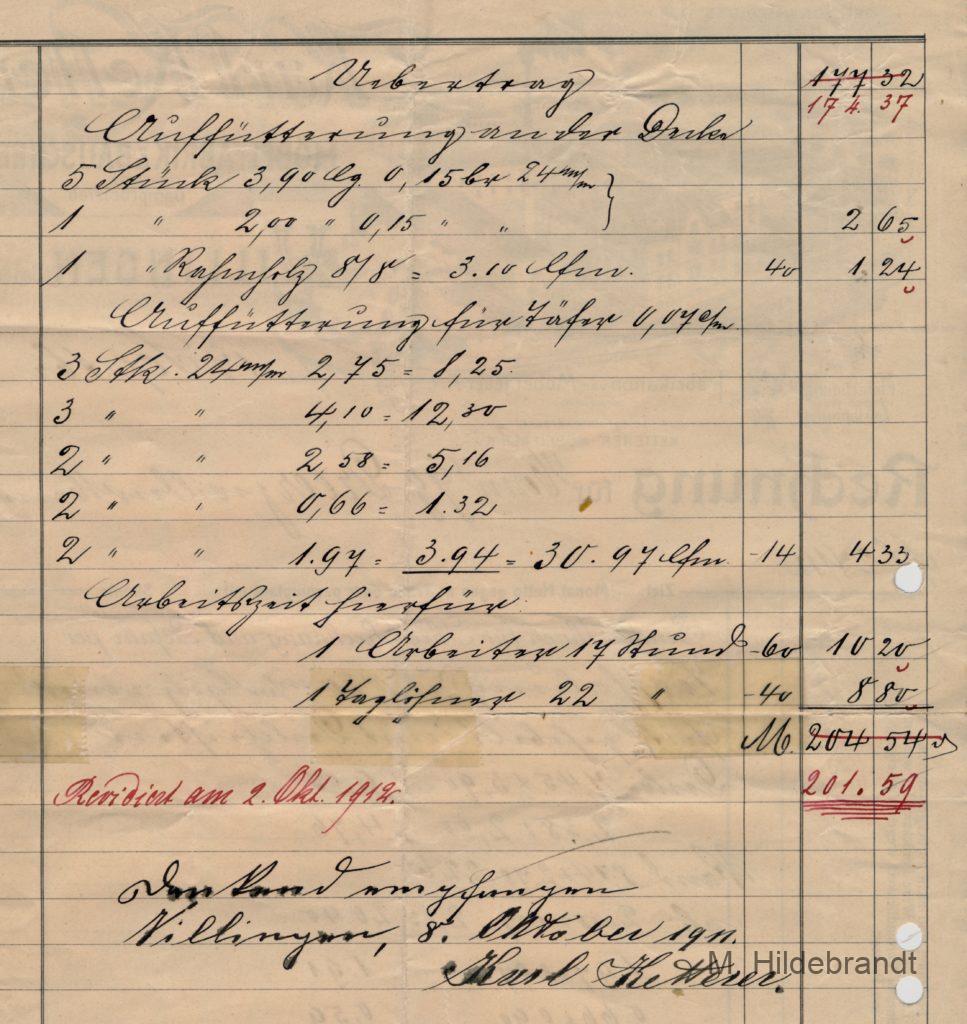 Uebertrag 177 32
174. 37
Auffütterung an der Decke
5 Stück 3,90 lg. 0,15 br 24 m/m
1 " 2,00 " 0,15 " " 2 65
1 " Rahmholz 8/8 = 3.10 lfm. 40 1 24
Auffütterung für Täfer 0,07 c/m
3 Stk. 24 m/m 2,75 = 8,25.
3 " " 4,10 = 12,30
2 " " 2,58 = 5,16
2 " " 0,66 = 1.32
2 " " 1.97 = 3.94 = 30.97 lfm -14 4 33
Arbeitszeit hierfür
1 Arbeiter 17 Stund -60 10 20
1 Taglöhner 22 " -40 8 80
M. 204 54
Revidiert am 2. Okt. 1912. 201. 59
Dankend empfangen
Villingen, 8. Oktober 1911.
Karl Ketterer.
M. Hildebrandt